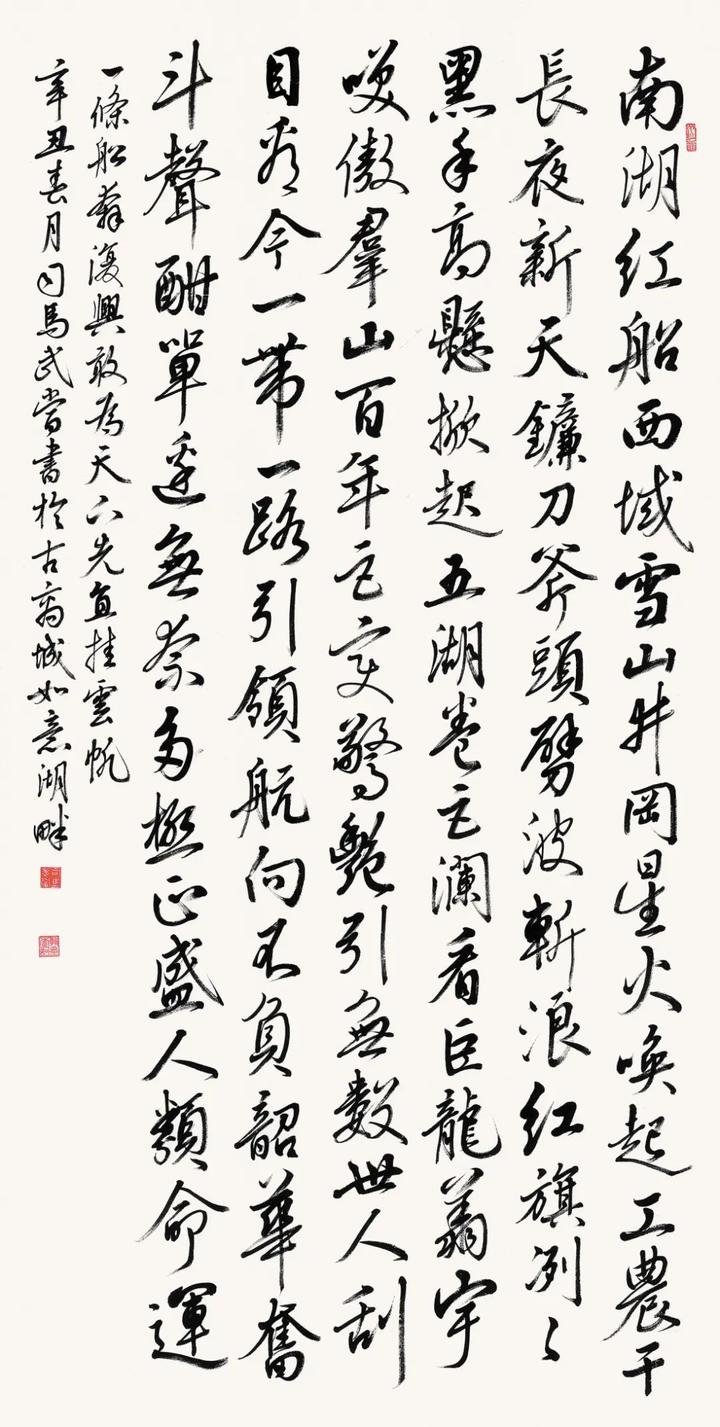 南湖红船西域雪山井岡星火唤起工農干
長夜新天鐮刀斧頭劈波斬浪红旗冽〻
黑手高懸掀起五湖卷巨瀾看巨龍翥宇
咲傲羣山百年巨变驚艷引無數世人刮
目看今一帶一路引領航向不負韶華奮
斗聲酣單邊無奈多極正盛人類命運
一條船復興敢為天下先直挂雲帆
辛丑春月司馬武當書於古商城如意湖畔